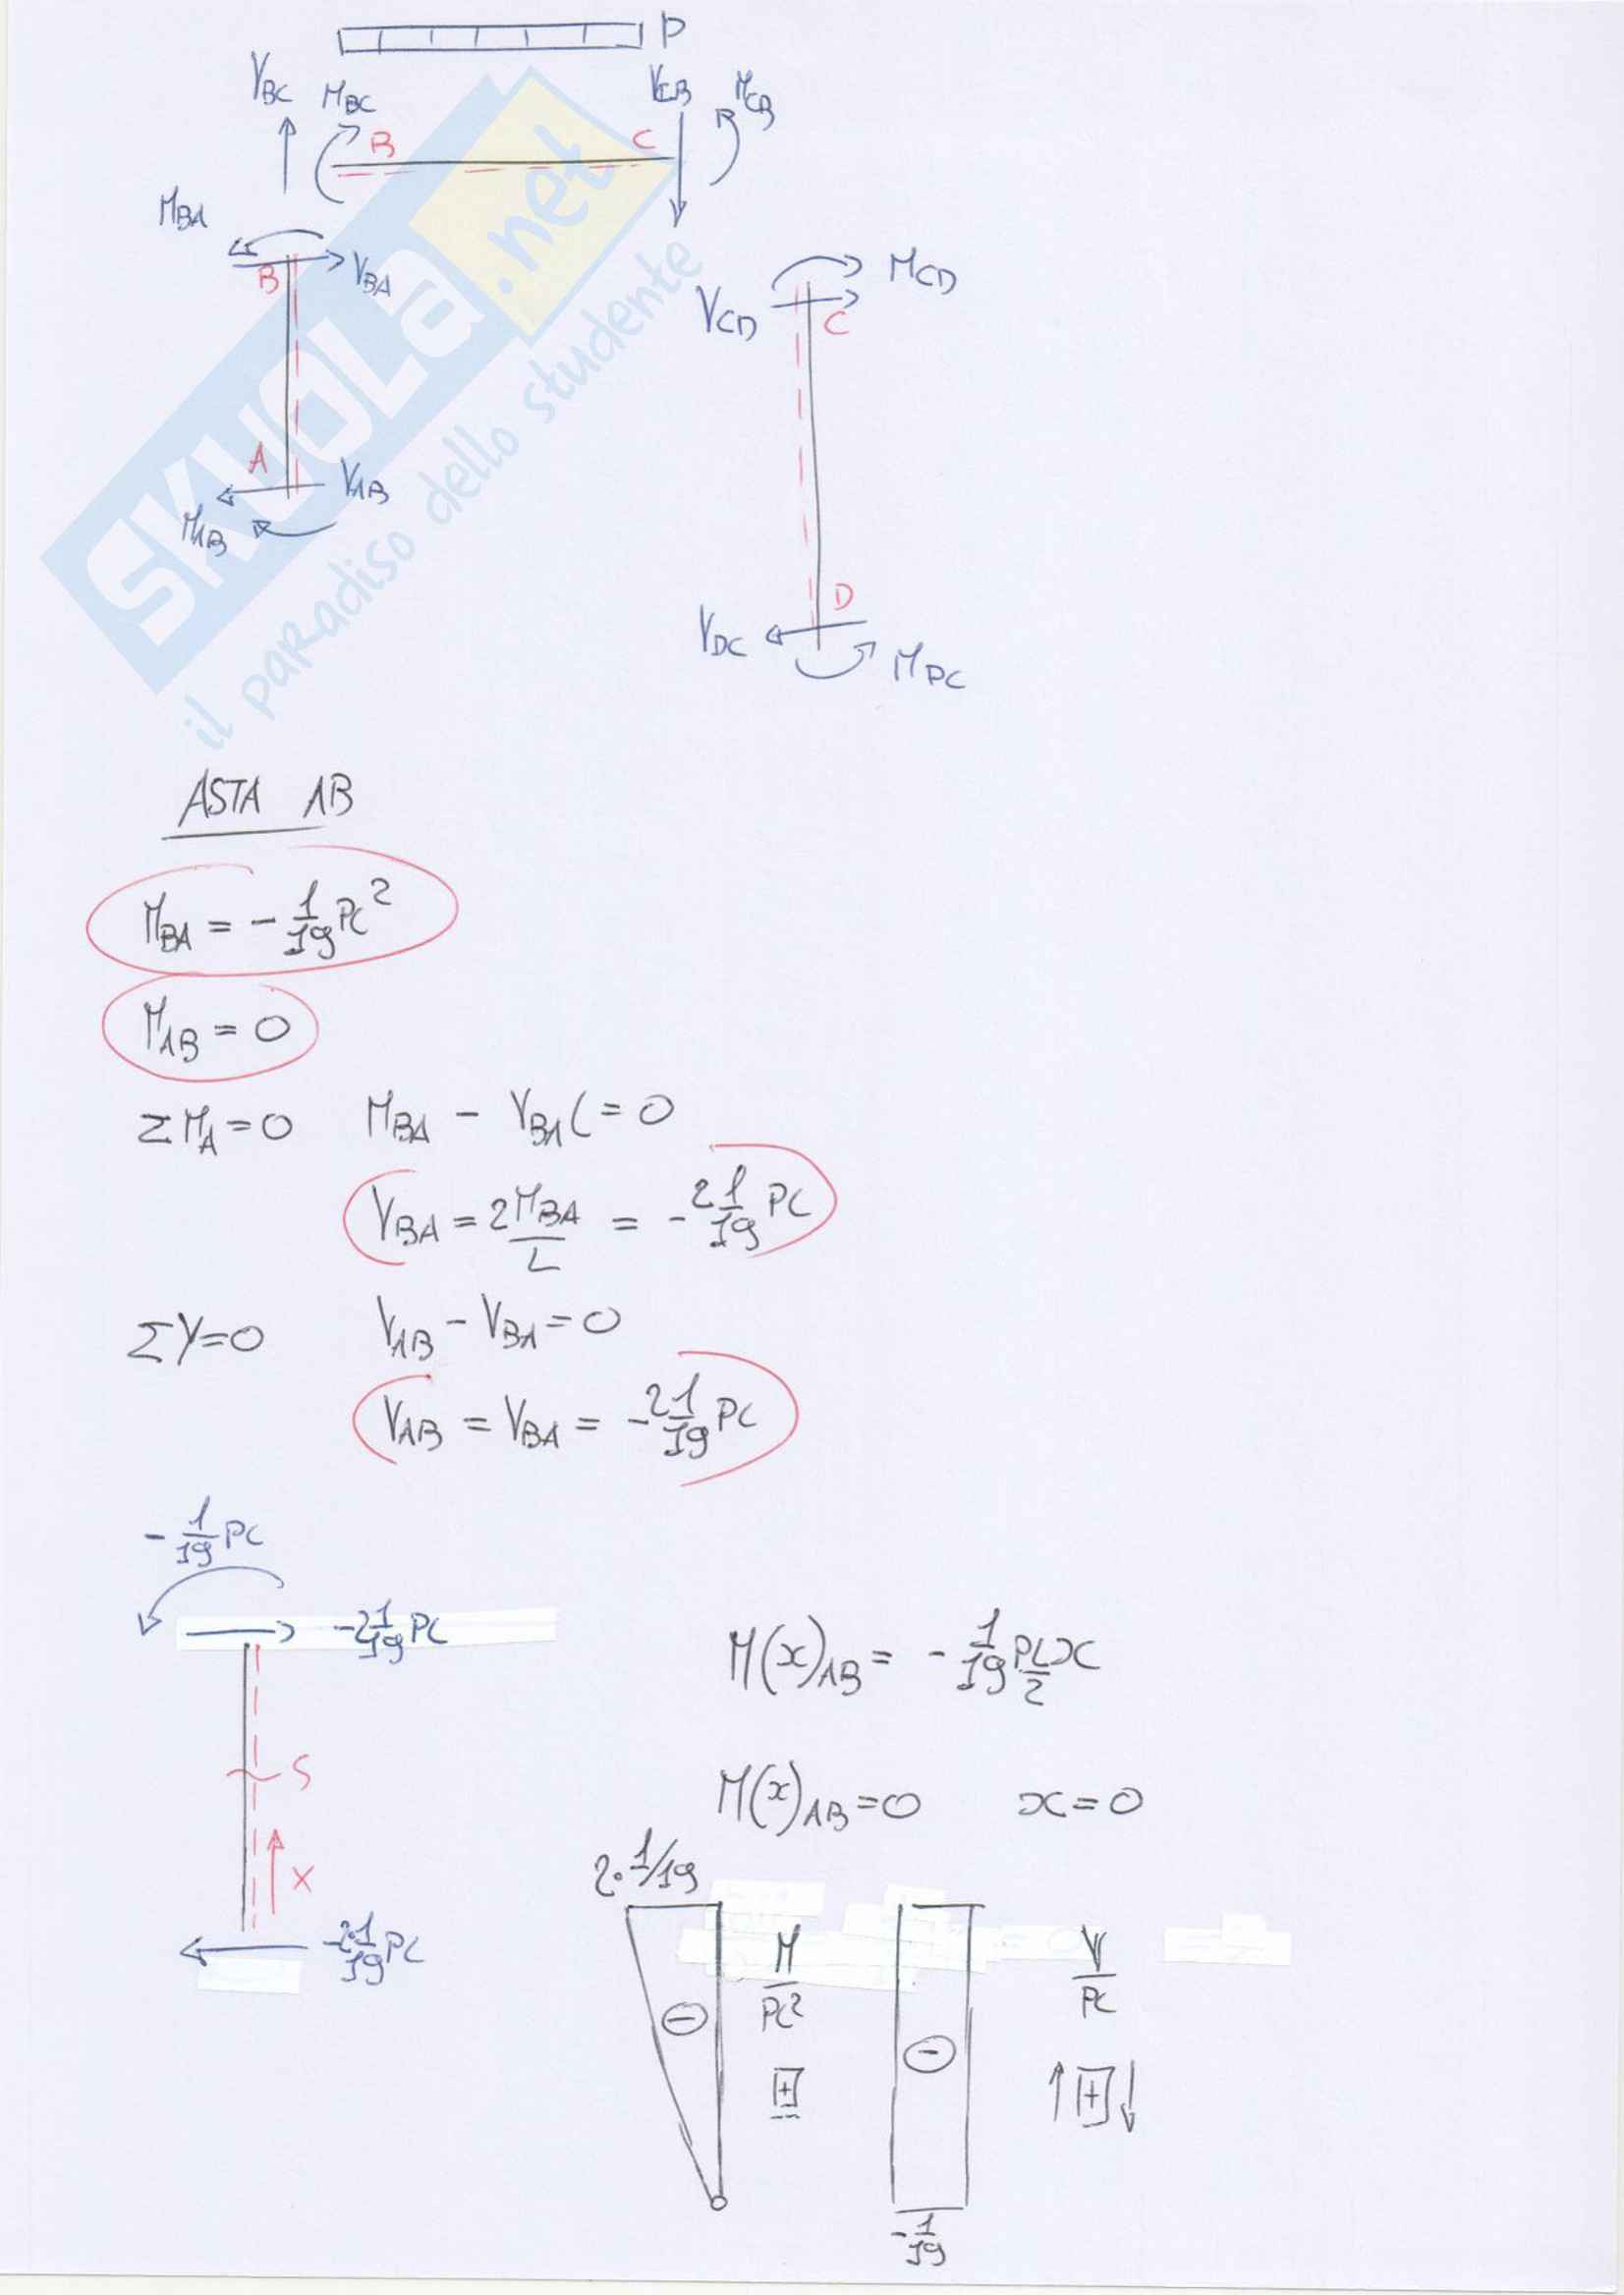 P
V_BC M_BC V_CB M_CB
B C
M_BA
B V_BA
M_CD
V_CD C
A V_AB
M_AB
D
V_DC M_DC
SKUOLA.net
il paradiso dello studente
ASTA AB
M_BA = - 1/19 Pl²
M_AB = 0
ΣM_A = 0 M_BA - V_BA l = 0
V_BA = 2 M_BA / L = - 2 1/19 Pl
ΣY = 0 V_AB - V_BA = 0
V_AB = V_BA = - 2 1/19 Pl
- 1/19 Pl
- 2 1/19 Pl
M(x)_AB = - 1/19 Pl/2 x
S
M(x)_AB = 0 x = 0
X
2·1/19
- 2·1/19 Pl
M/Pl² V/Pl
- -
+ +
- 1/19